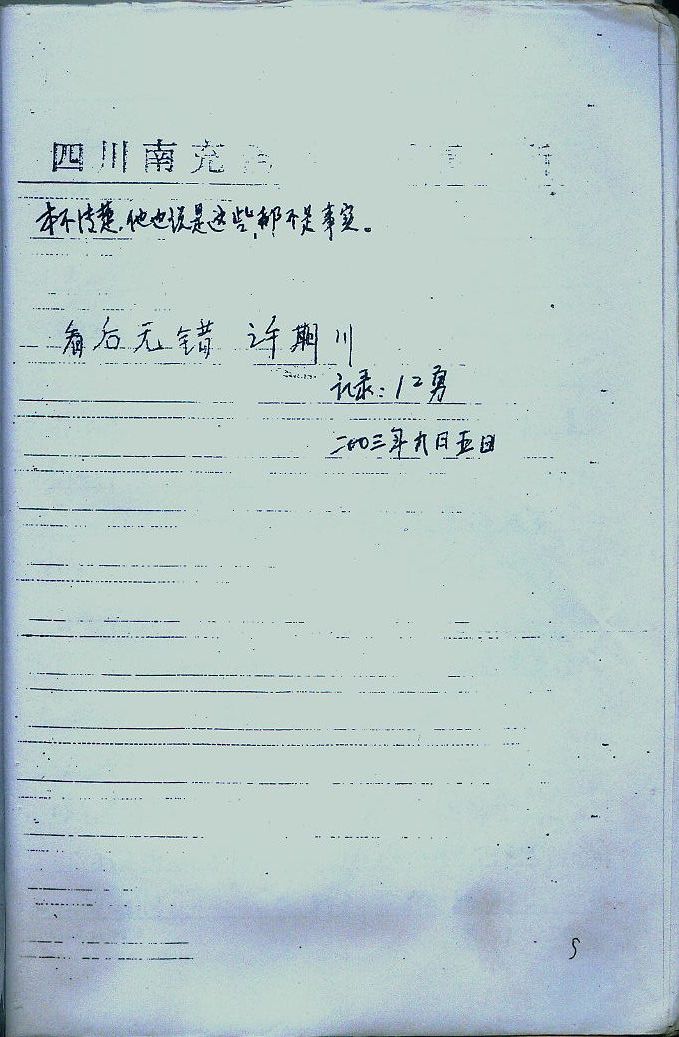 四川南充
本不清楚，他也说是这些都不是事实。
看后无错 许期川
记录：江勇
二00三年九月五日
5